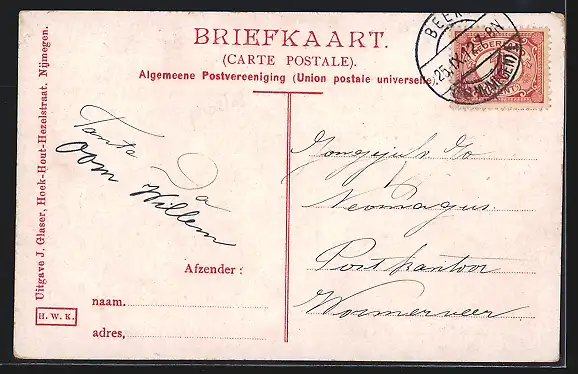 BRIEFKAART.
(CARTE POSTALE).
Algemeene Postvereeniging (Union postale universelle)
Uitgave J. Glaser, Hoek-Hout-Hezelstraat. Nijmegen.
H. W. K.
Tante Da
Oom Willem
Afzender:
naam.
adres,
Neomagus
Postkantoor
Wormerveer
BEEK
25.IX.12